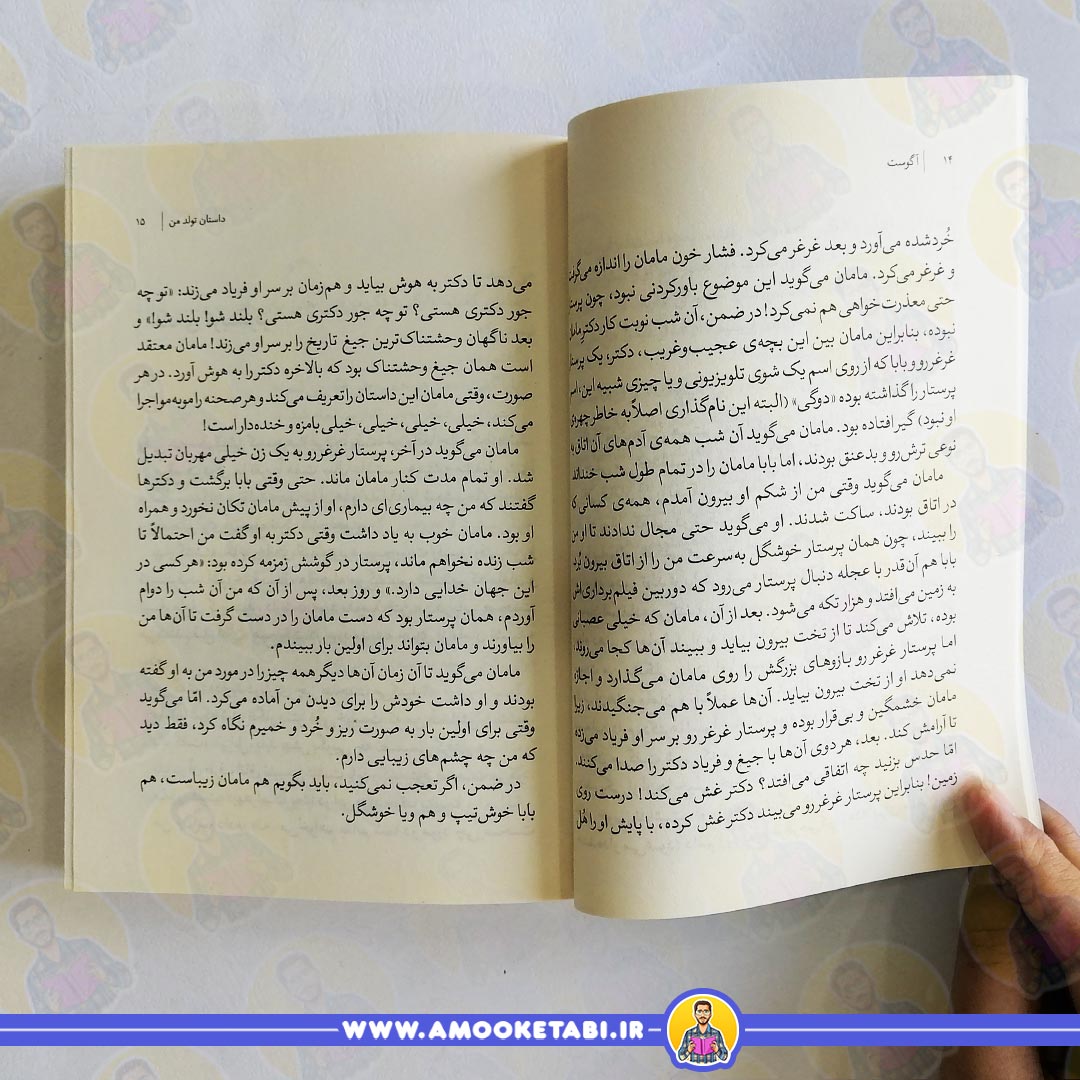 ۱۴ | آگوست
خُردشده می‌آورد و بعد غرغر می‌کرد. فشار خون مامان را اندازه می‌گرفت
و غرغر می‌کرد. مامان می‌گوید این موضوع باورکردنی نبود، چون پرستار
حتی معذرت‌خواهی هم نمی‌کرد! در ضمن، آن شب نوبت کار دکترِ مامان
نبوده، بنابراین مامان بین این بچه‌ی عجیب‌وغریب، دکتر، یک پرستار
غرغررو و بابا که از روی اسم یک شوی تلویزیونی و یا چیزی شبیه این، اسم
پرستار را گذاشته بوده «دوگی» (البته این نام‌گذاری اصلاً به خاطر چهره‌ی
او نبود) گیر افتاده بود. مامان می‌گوید آن شب همه‌ی آدم‌های آن اتاق به
نوعی ترش‌رو و بدعنق بودند، اما بابا مامان را در تمام طول شب خنداند.
مامان می‌گوید وقتی من از شکم او بیرون آمدم، همه‌ی کسانی که
در اتاق بودند، ساکت شدند. او می‌گوید حتی مجال ندادند تا او من
را ببیند، چون همان پرستار خوشگل به‌سرعت من را از اتاق بیرون بُرد.
بابا هم آن‌قدر با عجله دنبال پرستار می‌رود که دوربین فیلم‌برداری‌اش
به زمین می‌افتد و هزار تکه می‌شود. بعد از آن، مامان که خیلی عصبانی
بوده، تلاش می‌کند تا از تخت بیرون بیاید و ببیند آن‌ها کجا می‌روند،
اما پرستار غرغر رو بازوهای بزرگش را روی مامان می‌گذارد و اجازه
نمی‌دهد او از تخت بیرون بیاید. آن‌ها عملاً با هم می‌جنگیدند، زیرا
مامان خشمگین و بی‌قرار بوده و پرستار غرغر رو بر سر او فریاد می‌زده
تا آرامش کند. بعد، هر دوی آن‌ها با جیغ و فریاد دکتر را صدا می‌کنند.
امّا حدس بزنید چه اتفاقی می‌افتد؟ دکتر غش می‌کند! درست روی
زمین! بنابراین پرستار غرغر رو می‌بیند دکتر غش کرده، با پایش او را هُل
داستان تولد من | ۱۵
می‌دهد تا دکتر به هوش بیاید و هم‌زمان بر سر او فریاد می‌زند: «تو چه
جور دکتری هستی؟ تو چه جور دکتری هستی؟ بلند شو! بلند شو!» و
بعد ناگهان وحشتناک‌ترین جیغ تاریخ را بر سر او می‌زند! مامان معتقد
است همان جیغ وحشتناک بود که بالاخره دکتر را به هوش آورد. در هر
صورت، وقتی مامان این داستان را تعریف می‌کند و هر صحنه را موبه‌مو اجرا
می‌کند، خیلی، خیلی، خیلی، خیلی بامزه و خنده‌دار است!
مامان می‌گوید در آخر، پرستار غرغررو به یک زن خیلی مهربان تبدیل
شد. او تمام مدت کنار مامان ماند. حتی وقتی بابا برگشت و دکترها
گفتند که من چه بیماری‌ای دارم، او از پیش مامان تکان نخورد و همراه
او بود. مامان خوب به یاد داشت وقتی دکتر به او گفت من احتمالاً تا
شب زنده نخواهم ماند، پرستار در گوشش زمزمه کرده بود: «هر کسی در
این جهان خدایی دارد.» و روز بعد، پس از آن که من آن شب را دوام
آوردم، همان پرستار بود که دست مامان را در دست گرفت تا آن‌ها من
را بیاورند و مامان بتواند برای اولین بار ببیندم.
مامان می‌گوید تا آن زمان آن‌ها دیگر همه چیز را در مورد من به او گفته
بودند و او داشت خودش را برای دیدن من آماده می‌کرد. امّا می‌گوید
وقتی برای اولین بار به صورت ریز و خُرد و خمیرم نگاه کرد، فقط دید
که من چه چشم‌های زیبایی دارم.
در ضمن، اگر تعجب نمی‌کنید، باید بگویم هم مامان زیباست، هم
بابا خوش‌تیپ و هم ویا خوشگل.
WWW.AMOOKETABI.IR